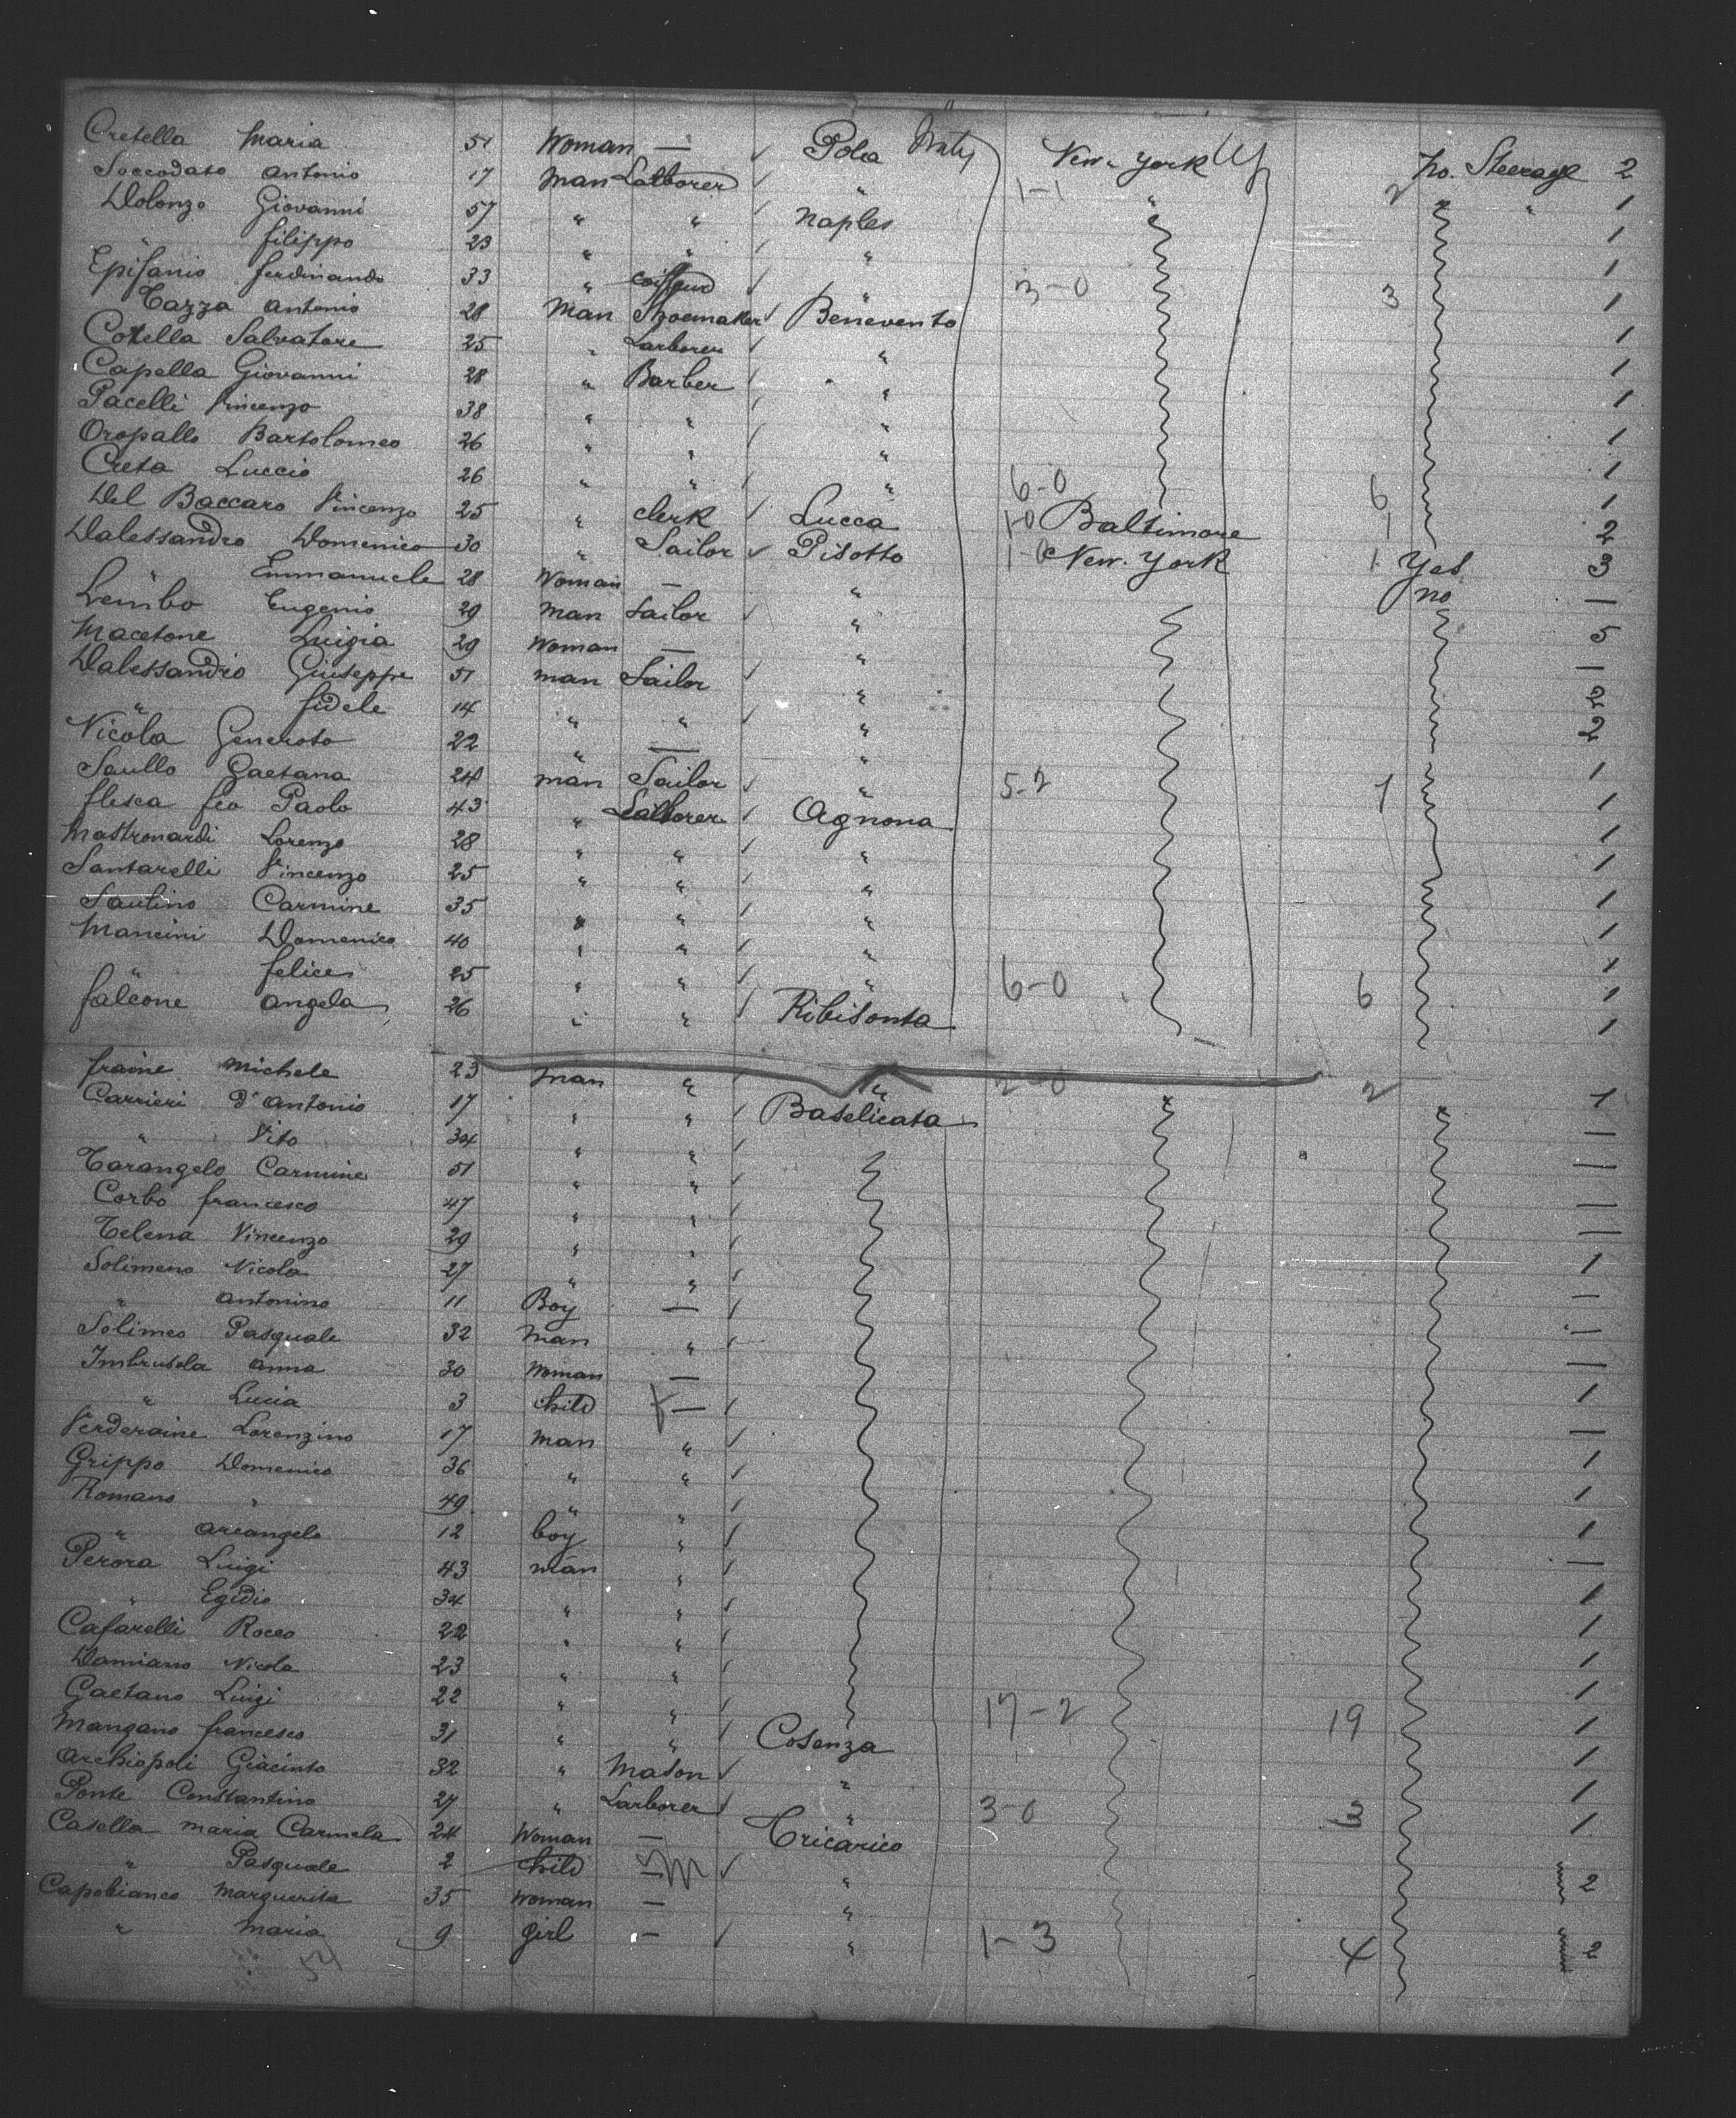 Cretella Maria 51 Woman — Pola Italy New York no. Steerage 2
Soccodato Antonio 17 man Laborer " 1-1 " 2 " " 1
Dolonzo Giovanni 57 " " Naples 1
" filippo 23 " " " 1
Epifanio ferdinando 33 " coiffeur " 3-0 3 1
Tazza Antonio 28 Man Shoemaker Benevento
Cotella Salvatore 25 " Larborer " 1
Capella Giovanni 28 " Barber " 1
Pacelli Vincenzo 38 " " " 1
Oropallo Bartolomeo 26 " " " 1
Creta Luccio 26 " " " 6-0 6 1
Del Baccaro Vincenzo 25 " clerk Lucca 1-0 Baltimore 1 1
Dalessandro Domenico 30 " Sailor Pisotto 1-0 New-York 1 Yes 2
" Emmanuele 28 Woman — " no 3
Lembo Eugenio 29 man Sailor " —
Macetone Luigia 29 Woman — " 5
Dalessandro Giuseppe 51 man Sailor " —
" fidele 14 " " " 2
Nicola Generoto 22 " — " 2
Saullo Gaetana 24 man Sailor " 5-2 7 1
flesca feo Paolo 43 " Laborer Agnona 1
Mastronardi Lorenzo 28 " " " 1
Santarelli Vincenzo 25 " " " 1
Saulino Carmine 35 " " " 1
Mancini Domenico 40 " " " 1
" felice 25 " " " 6-0 6 1
falcone Angela 26 " " Ribisonta 1
fraine Michele 23 man " " 2-0 2
Carrieri D'Antonio 17 " " Baselicata " " 1
" Vito 34 " " —
Tarangelo Carmine 51 " " —
Corbo francesco 47 " " —
Telena Vincenzo 29 " " —
Solimeno Nicola 27 " " 1
" Antonino 11 Boy — —
Solimeo Pasquale 32 Man " —
Imbrusola Anna 30 Woman — —
" Lucia 3 child — 1
Verderaine Lorenzino 17 man " —
Grippo Domenico 36 " " 1
Romano " 49 " " 1
" Arcangelo 12 boy " 1
Perora Luigi 43 man " —
" Egidio 34 " " 1
Cafarelli Rocco 22 " " 1
Damiano Nicola 23 " " 1
Gaetano Luigi 22 " " 17-2 19 1
Mangano francesco 31 " " Cosenza 1
Archiopoli Giacinto 32 " Mason " 1
Ponte Constantino 27 " Larborer " 3-0 3 1
Casella Maria Carmela 24 Woman — Tricarico 1
" Pasquale 2 child — " 2
Capobianco Marguerita 35 Woman — "
" Maria 9 girl — " 1-3 4 2